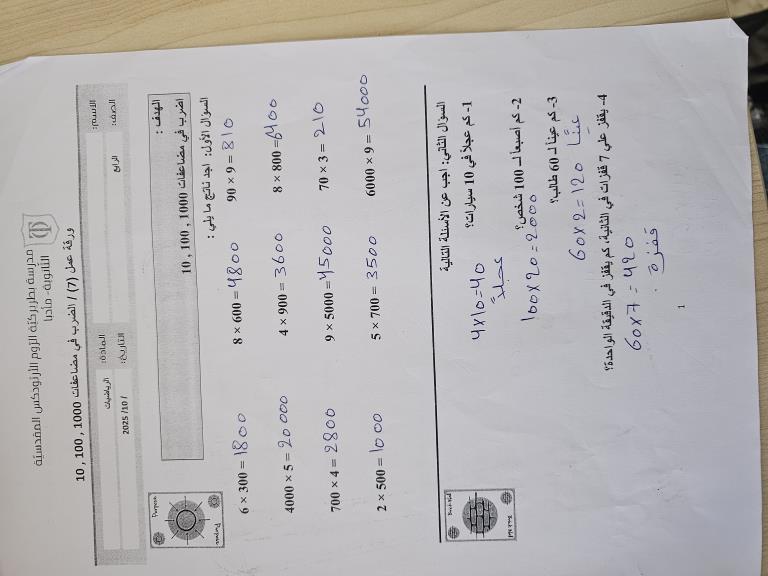 مدرسة بطريركيّة الروم الأرثوذكس المقدسيّة
الثانوية - مادبا
ورقة عمل (7) / الضرب في مضاعفات 1000 , 100 , 10
الاسم: المادة: الرياضيات
الصف: الرابع التاريخ: / 10 / 2025
Purpose
الهدف :
اضرب في مضاعفات 1000 , 100 , 10
السؤال الأول: اجد ناتج ما يلي :
6 × 300 = 1800 8 × 600 = 4800 90 × 9 = 810
4000 × 5 = 20000 4 × 900 = 3600 8 × 800 = 6400
700 × 4 = 2800 9 × 5000 = 45000 70 × 3 = 210
2 × 500 = 1000 5 × 700 = 3500 6000 × 9 = 54000
السؤال الثاني: اجب عن الأسئلة التالية
1- كم عجلاً في 10 سيارات؟
4x10=40
عجلاً
2- كم اصبعا لـ 100 شخص؟
100x20=2000
3- كم عيناً لـ 60 طالب؟
60x2=120 عينًا
4- يقفز علي 7 قفزات في الثانية، كم يقفز في الدقيقة الواحدة؟
60x7=420
قفزة .
1